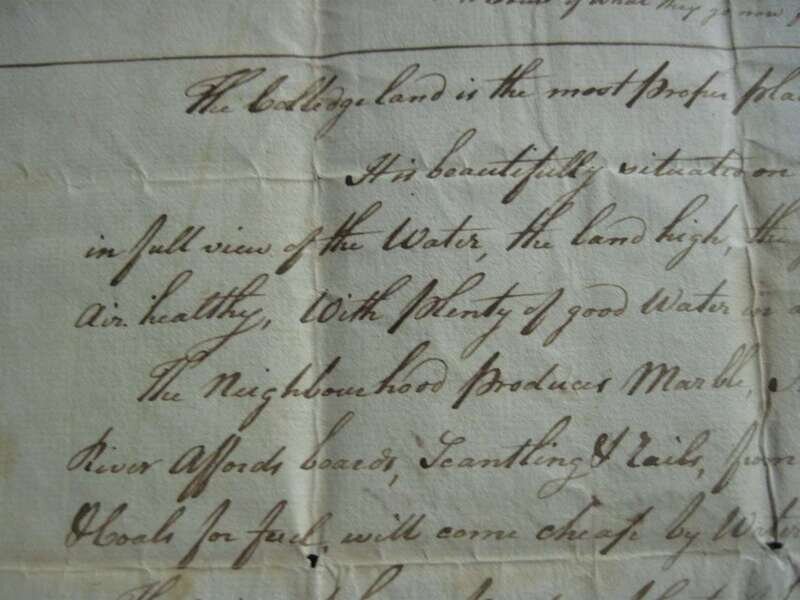 of what they go now
The Colledge land is the most proper pla
It is beautifully situated on
in full view of the Water, the land high, the
Air healthy, With plenty of good Water in a
The Neighbourhood produces Marble,
River Affords boards, Scantling & Rails, from
& Coals for fuel, will come cheap by Water